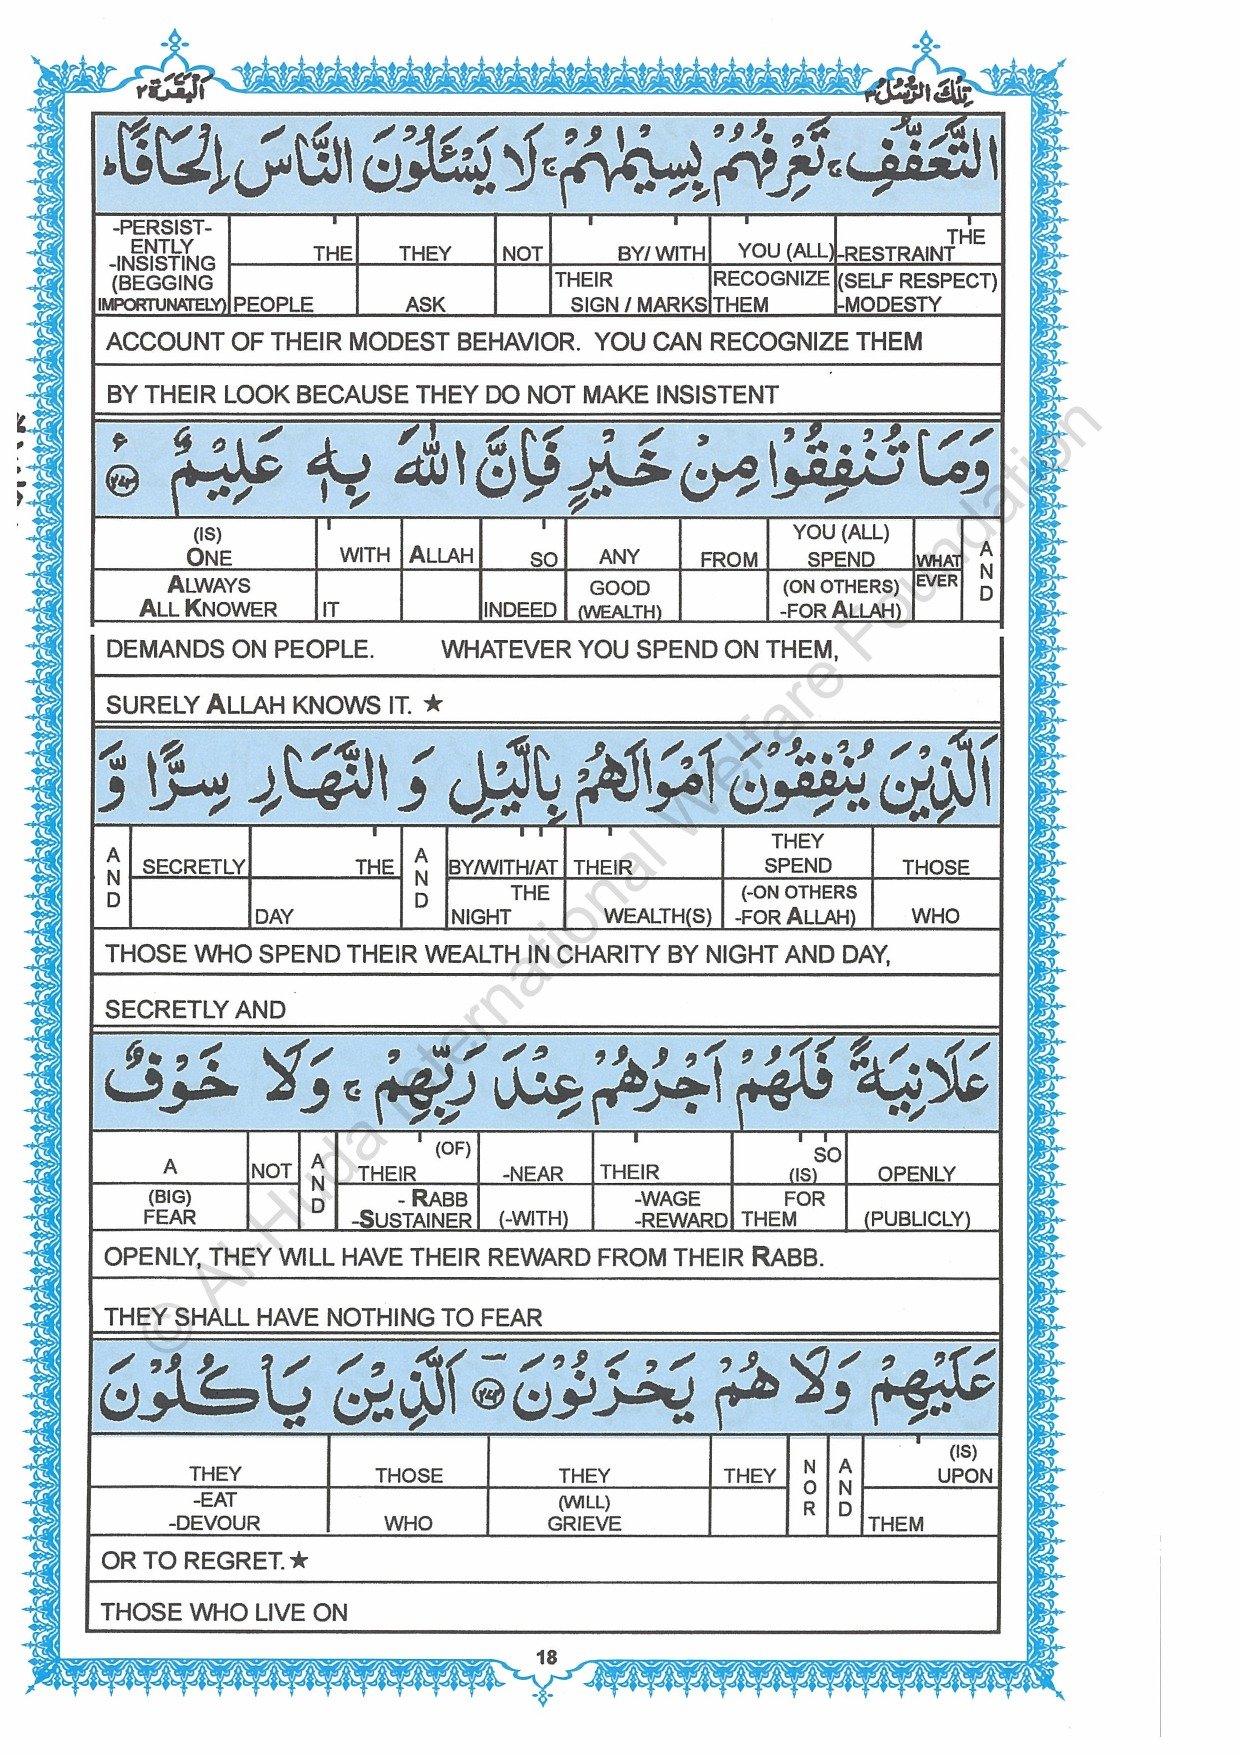 تِلْكَ الرُّسُلُ ٣
اَلْبَقَرَة ٢
التَّعَفُّفِ ۚ تَعْرِفُهُمْ بِسِيْمٰهُمْ ۚ لَا يَسْـَٔلُوْنَ النَّاسَ اِلْحَافًا ؕ
THE -RESTRAINT (SELF RESPECT) -MODESTY
YOU (ALL) RECOGNIZE THEM
BY/ WITH THEIR SIGN / MARKS
NOT
THEY ASK
THE PEOPLE
-PERSIST-ENTLY -INSISTING (BEGGING IMPORTUNATELY)
ACCOUNT OF THEIR MODEST BEHAVIOR. YOU CAN RECOGNIZE THEM
BY THEIR LOOK BECAUSE THEY DO NOT MAKE INSISTENT
وَمَا تُنْفِقُوْا مِنْ خَيْرٍ فَاِنَّ اللّٰهَ بِهٖ عَلِيْمٌ ۟ ﴿٢٧٣﴾ ع
AND
WHAT EVER
YOU (ALL) SPEND (ON OTHERS) -FOR ALLAH)
FROM
ANY GOOD (WEALTH)
SO INDEED
ALLAH
WITH IT
(IS) ONE ALWAYS ALL KNOWER
DEMANDS ON PEOPLE. WHATEVER YOU SPEND ON THEM,
SURELY ALLAH KNOWS IT. ★
اَلَّذِيْنَ يُنْفِقُوْنَ اَمْوَالَهُمْ بِالَّيْلِ وَ النَّهَارِ سِرًّا وَّ
THOSE WHO
THEY SPEND (-ON OTHERS -FOR ALLAH)
THEIR WEALTH(S)
BY/WITH/AT THE NIGHT
AND
THE DAY
SECRETLY
AND
THOSE WHO SPEND THEIR WEALTH IN CHARITY BY NIGHT AND DAY,
SECRETLY AND
عَلَانِيَةً فَلَهُمْ اَجْرُهُمْ عِنْدَ رَبِّهِمْ ۚ وَلَا خَوْفٌ
OPENLY (PUBLICLY)
SO (IS) FOR THEM
THEIR -WAGE -REWARD
-NEAR (-WITH)
(OF) THEIR - RABB -SUSTAINER
AND
NOT
A (BIG) FEAR
OPENLY, THEY WILL HAVE THEIR REWARD FROM THEIR RABB.
THEY SHALL HAVE NOTHING TO FEAR
عَلَيْهِمْ وَلَا هُمْ يَحْزَنُوْنَ ﴿٢٧٤﴾ اَلَّذِيْنَ يَاْكُلُوْنَ
(IS) UPON THEM
AND
NOR
THEY
THEY (WILL) GRIEVE
THOSE WHO
THEY -EAT -DEVOUR
OR TO REGRET. ★
THOSE WHO LIVE ON
18
© Al-Huda International Welfare Foundation